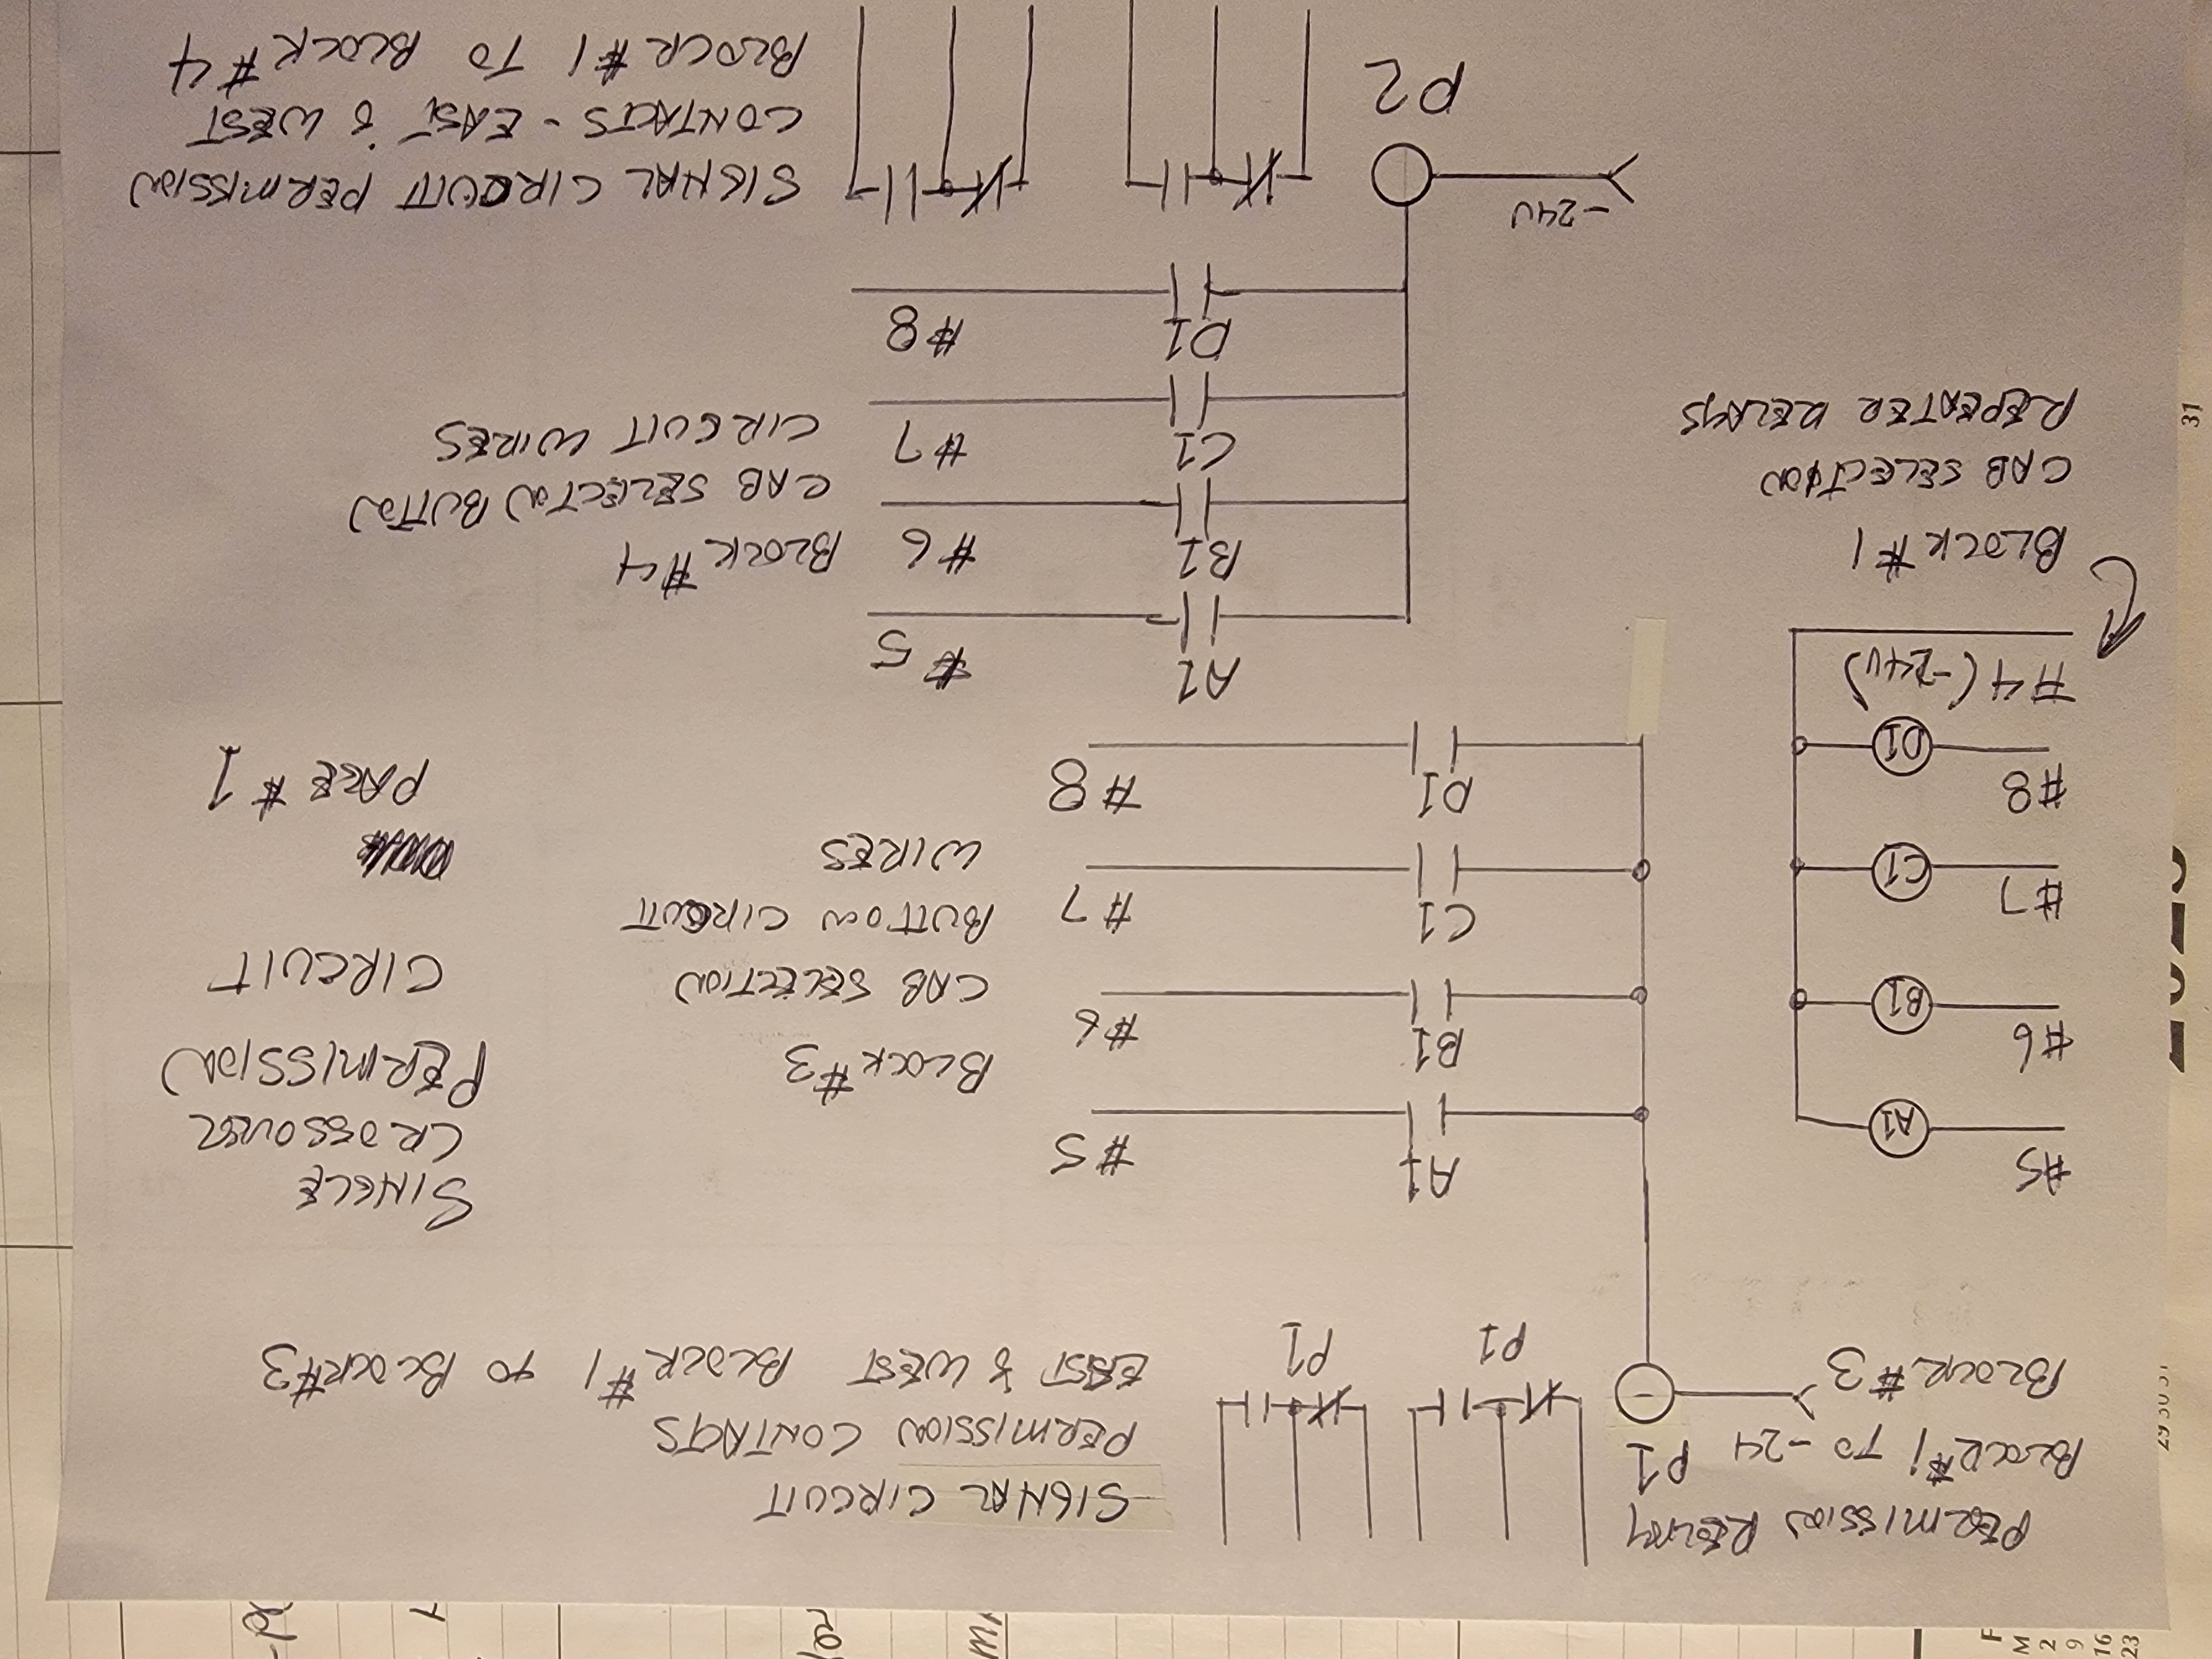 PERMISSION RELAY
BLOCK #1 TO -24
BLOCK #3
P1
P1
P1
SIGNAL CIRCUIT
PERMISSION CONTACTS
EAST & WEST BLOCK #1 TO BLOCK #3
#5
A1
#6
B1
#7
C1
#8
D1
#4 (-24V)
BLOCK #1
CAB SELECTION
REPEATER RELAYS
A1
#5
B1
#6
C1
#7
D1
#8
BLOCK #3
CAB SELECTION
BUTTON CIRCUIT
WIRES
SINGLE
CROSSOVER
PERMISSION
CIRCUIT
PAGE #1
A1
#5
B1
#6
C1
#7
D1
#8
BLOCK #4
CAB SELECTION BUTTON
CIRCUIT WIRES
-24V
P2
SIGNAL CIRCUIT PERMISSION
CONTACTS - EAST & WEST
BLOCK #1 TO BLOCK #4
31
29 30 31
F
M
2
9
16
23